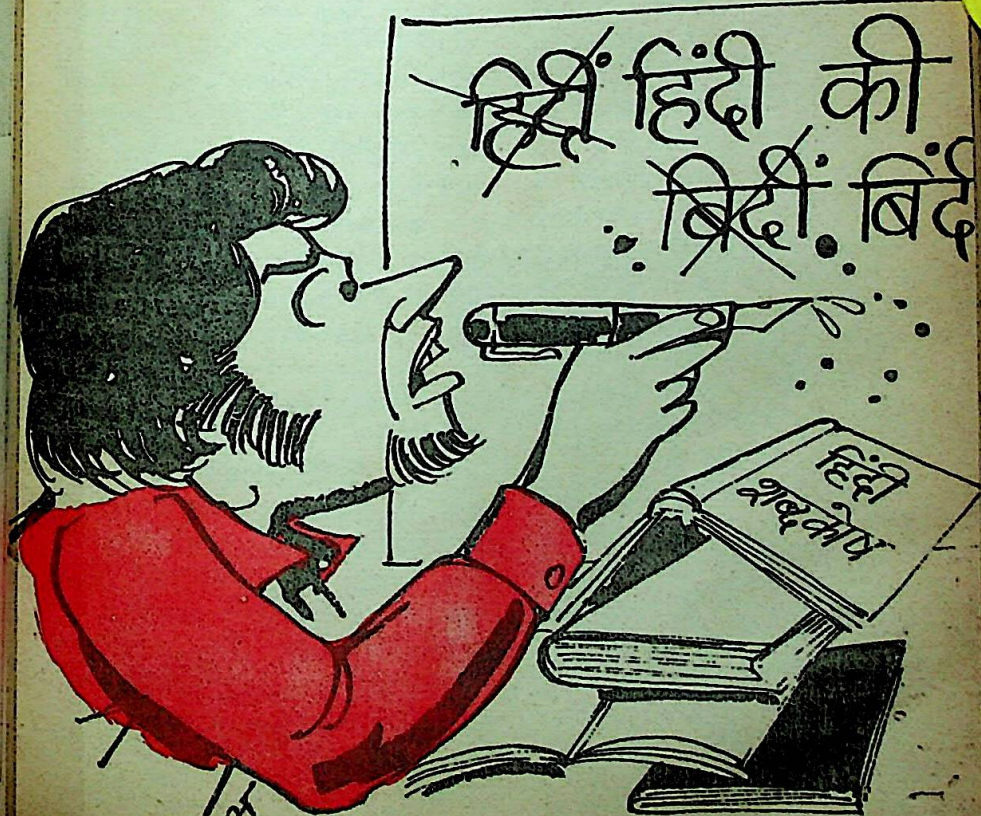 हिदीं हिंदी की
बिदीं बिंदी
हिंदी
शब्द कोष